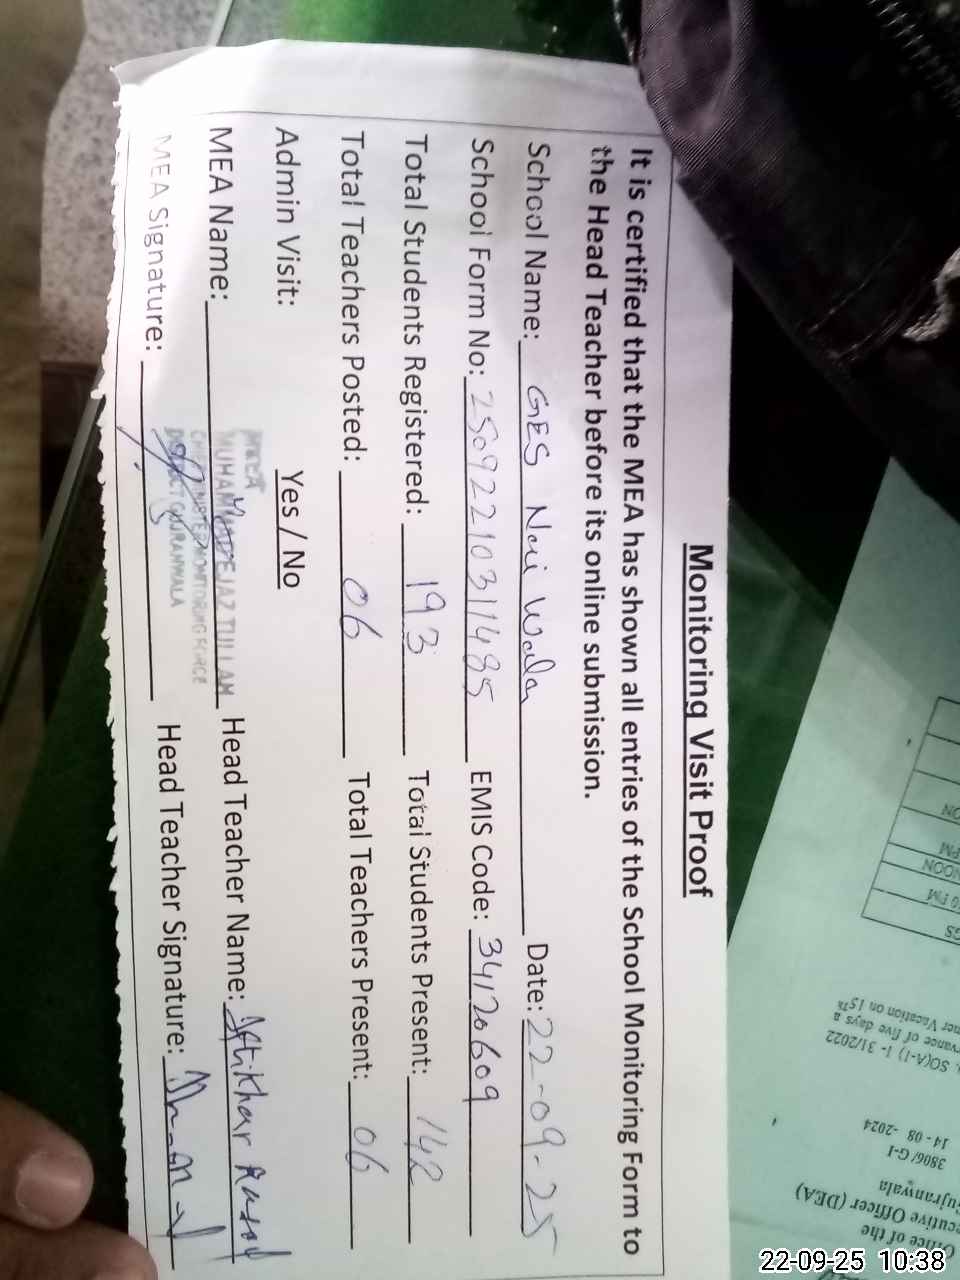 Monitoring Visit Proof
It is certified that the MEA has shown all entries of the School Monitoring Form to
the Head Teacher before its online submission.
School Name: GES Noi Wala Date: 22-09-25
School Form No: 25092210311485 EMIS Code: 34120609
Total Students Registered: 193 Total Students Present: 142
Total Teachers Posted: 06 Total Teachers Present: 06
Admin Visit: Yes / No
MEA Name: MUHAMMAD EJAZ TULLAH Head Teacher Name: Iftikhar Rasool
CHIEF MINISTER MONITORING FORCE
DISTRICT GUJRANWALA
MEA Signature: Head Teacher Signature:
Office of the
Executive Officer (DEA)
Gujranwala
3806/G-I
14-08-2024
SO(A-I) 1-31/2022
vance of five days a
mer Vacation on 15th
NOON
PM
22-09-25 10:38